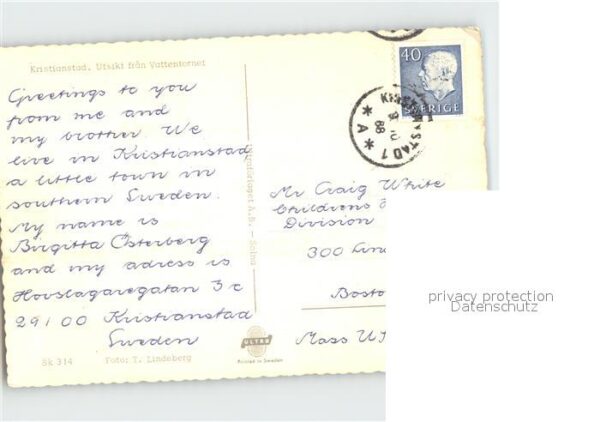 Kristianstad. Utsikt från Vattentornet
Greetings to you
from me and
my brother. We
live in Kristianstad
a little town in
southern Sweden.
My name is
Birgitta Österberg
and my adress is
Hovslagaregatan 3 c
291 00 Kristianstad
Sweden
Sk 314 Foto: T. Lindeberg
A.B. - Solna
ULTRA
Printed in Sweden
40
SVERIGE
KRISTIANSTAD 1
68
* A *
Mr Craig White
Childrens
Division
300 Lin
Bosto
Mass U
privacy protection
Datenschutz